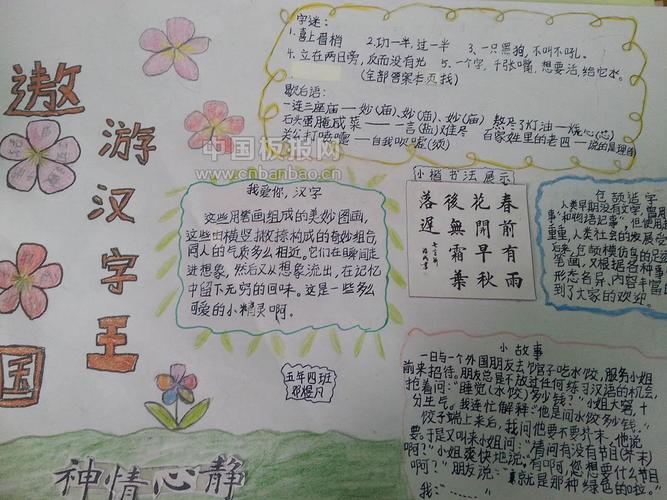 遨游汉字王国
字迷：
1.喜上眉梢 2.功一半,过一半 3、一只黑狗,不叫不吼。
4.立在两日旁,反而没有光 5.一个字,千张嘴,想要活,给它水。
(全部答案本页找)
歇后语：
一连三座庙——妙(庙)、妙(庙)、妙(庙) 熬尽了灯油——烧心(芯)
石头蛋腌咸菜——一言(盐)难尽 百家姓里的老四——说的是理
关公打喷嚏——自我吹嘘(须)
中国板报网
www.cnbanbao.cn
我爱你,汉字
这些用笔画组成的美妙图画,
这些由横竖撇捺构成的奇妙组合,
同人的气质多么相近。它们在瞬间走
进想象,然后又从想象流出,在记忆
中留下无穷的回味。这是一些多么
可爱的小精灵啊。
小楷书法展示
春前有雨
花開早秋
後無霜葉
落遲
包颉造字
人类早期没有文字,曾用
事"和"物语记事",但使用
重重,人类社会的发展
后来,包颉模仿鸟的足迹
笔画,又根据各种事
形态各异、内容丰富
到了大家的欢迎
五年四班
小故事
一日与一个外国朋友去饭馆子吃水饺,服务小姐
前来招待。朋友总是不放过任何练习汉语的机会,
抢着问:"睡觉(水饺)多少钱?"小姐大窘,十
分生气。我连忙解释:"他是问水饺多少钱。"
饺子端上来后,我问他要不要芥末,他说
要。于是又叫来小姐问:"请问有没有节目(芥末)
啊?"小姐爽快地说:"有啊,您想要什么节目
啊?"朋友说:"就是那种绿色的啦。"
我:……
神情心静